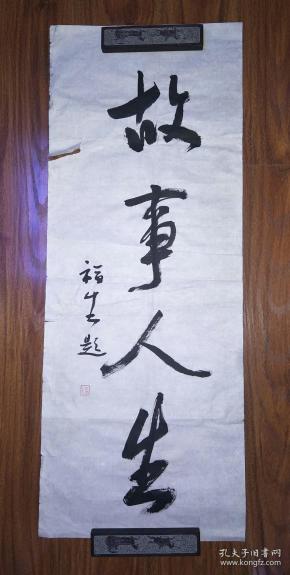 故事人生
福生题
孔夫子旧书网
www.kongfz.com